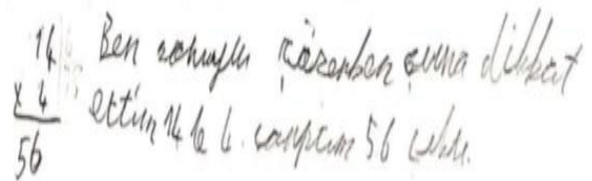 14 Ben soruyu çözerken şuna dikkat
x 4 ettim 14 le 4. çarptım 56 çıktı.
56